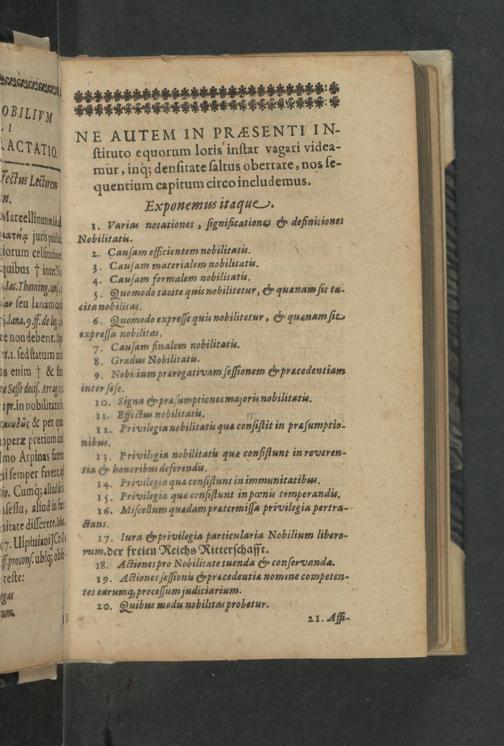 OBILIVM
I
RACTATIO.
NE AUTEM IN PRÆSENTI IN-
ſtituto equorum loris inſtar vagari videa-
mur, inq; denſitate ſaltus oberrare, nos ſe-
quentium capitum circo includemus.
Exponemus itaque.
1. Varias notationes, ſignificationes & definitiones
Nobilitatis.
2. Cauſam efficientem nobilitatis.
3. Cauſam materialem nobilitatis.
4. Cauſam formalem nobilitatis.
5. Quomodo tacite quis nobilitetur, & quænam ſit ta-
cita nobilitas.
6. Quomodo expreſſe quis nobilitetur, & quænam ſit
expreſſa nobilitas.
7. Cauſam finalem nobilitatis.
8. Gradus Nobilitatis.
9. Nobilium prærogativam ſeſſionem & præcedentiam
inter ſeſe.
10. Signa & præſumptiones majoris nobilitatis.
11. Effectus nobilitatis.
12. Privilegia nobilitatis quæ conſiſtit in præſumptio-
nibus.
13. Privilegia nobilitatis quæ conſiſtunt in reveren-
tia & honoribus deferendis.
14. Privilegia quæ conſiſtunt in immunitatibus.
15. Privilegia quæ conſiſtunt in pœnis temperandis.
16. Miſcellum quædam prætermiſſa privilegia pertra-
ctans.
17. Iura & privilegia particularia Nobilium libero-
rum, der freien Reichs Ritterſchafft.
18. Actiones pro Nobilitate tuenda & conſervanda.
19. Actiones ſeſſionis & præcedentiæ nomine competen-
tes earumq; proceſſum judiciarium.
20. Quibus modis nobilitas probetur.
21. Affi-